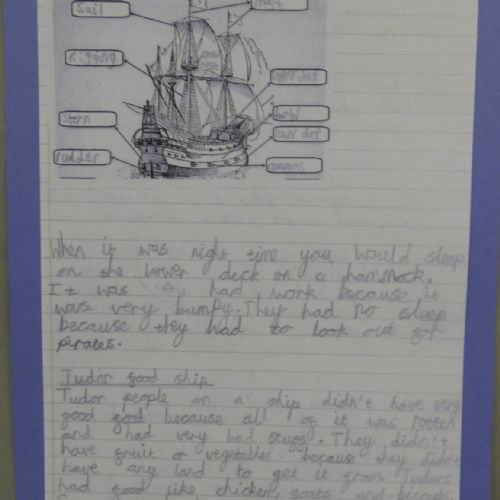 Sail
mast
Rigging
upper deck
Stern
bow
lower deck
rudder
cannons
When it was night time you would sleep
on the lower deck on a hammock.
It was very hard work because it
was very bumpy. They had no sleep
because they had to look out for
pirates.
Tudor food ship
Tudor people on a ship didn't have very
good food because all of it was rotten
and had very bad stuff. They didn't
have fruit or vegetables because they didn't
have any land to get it from Tudors
had food like chicken, goats and